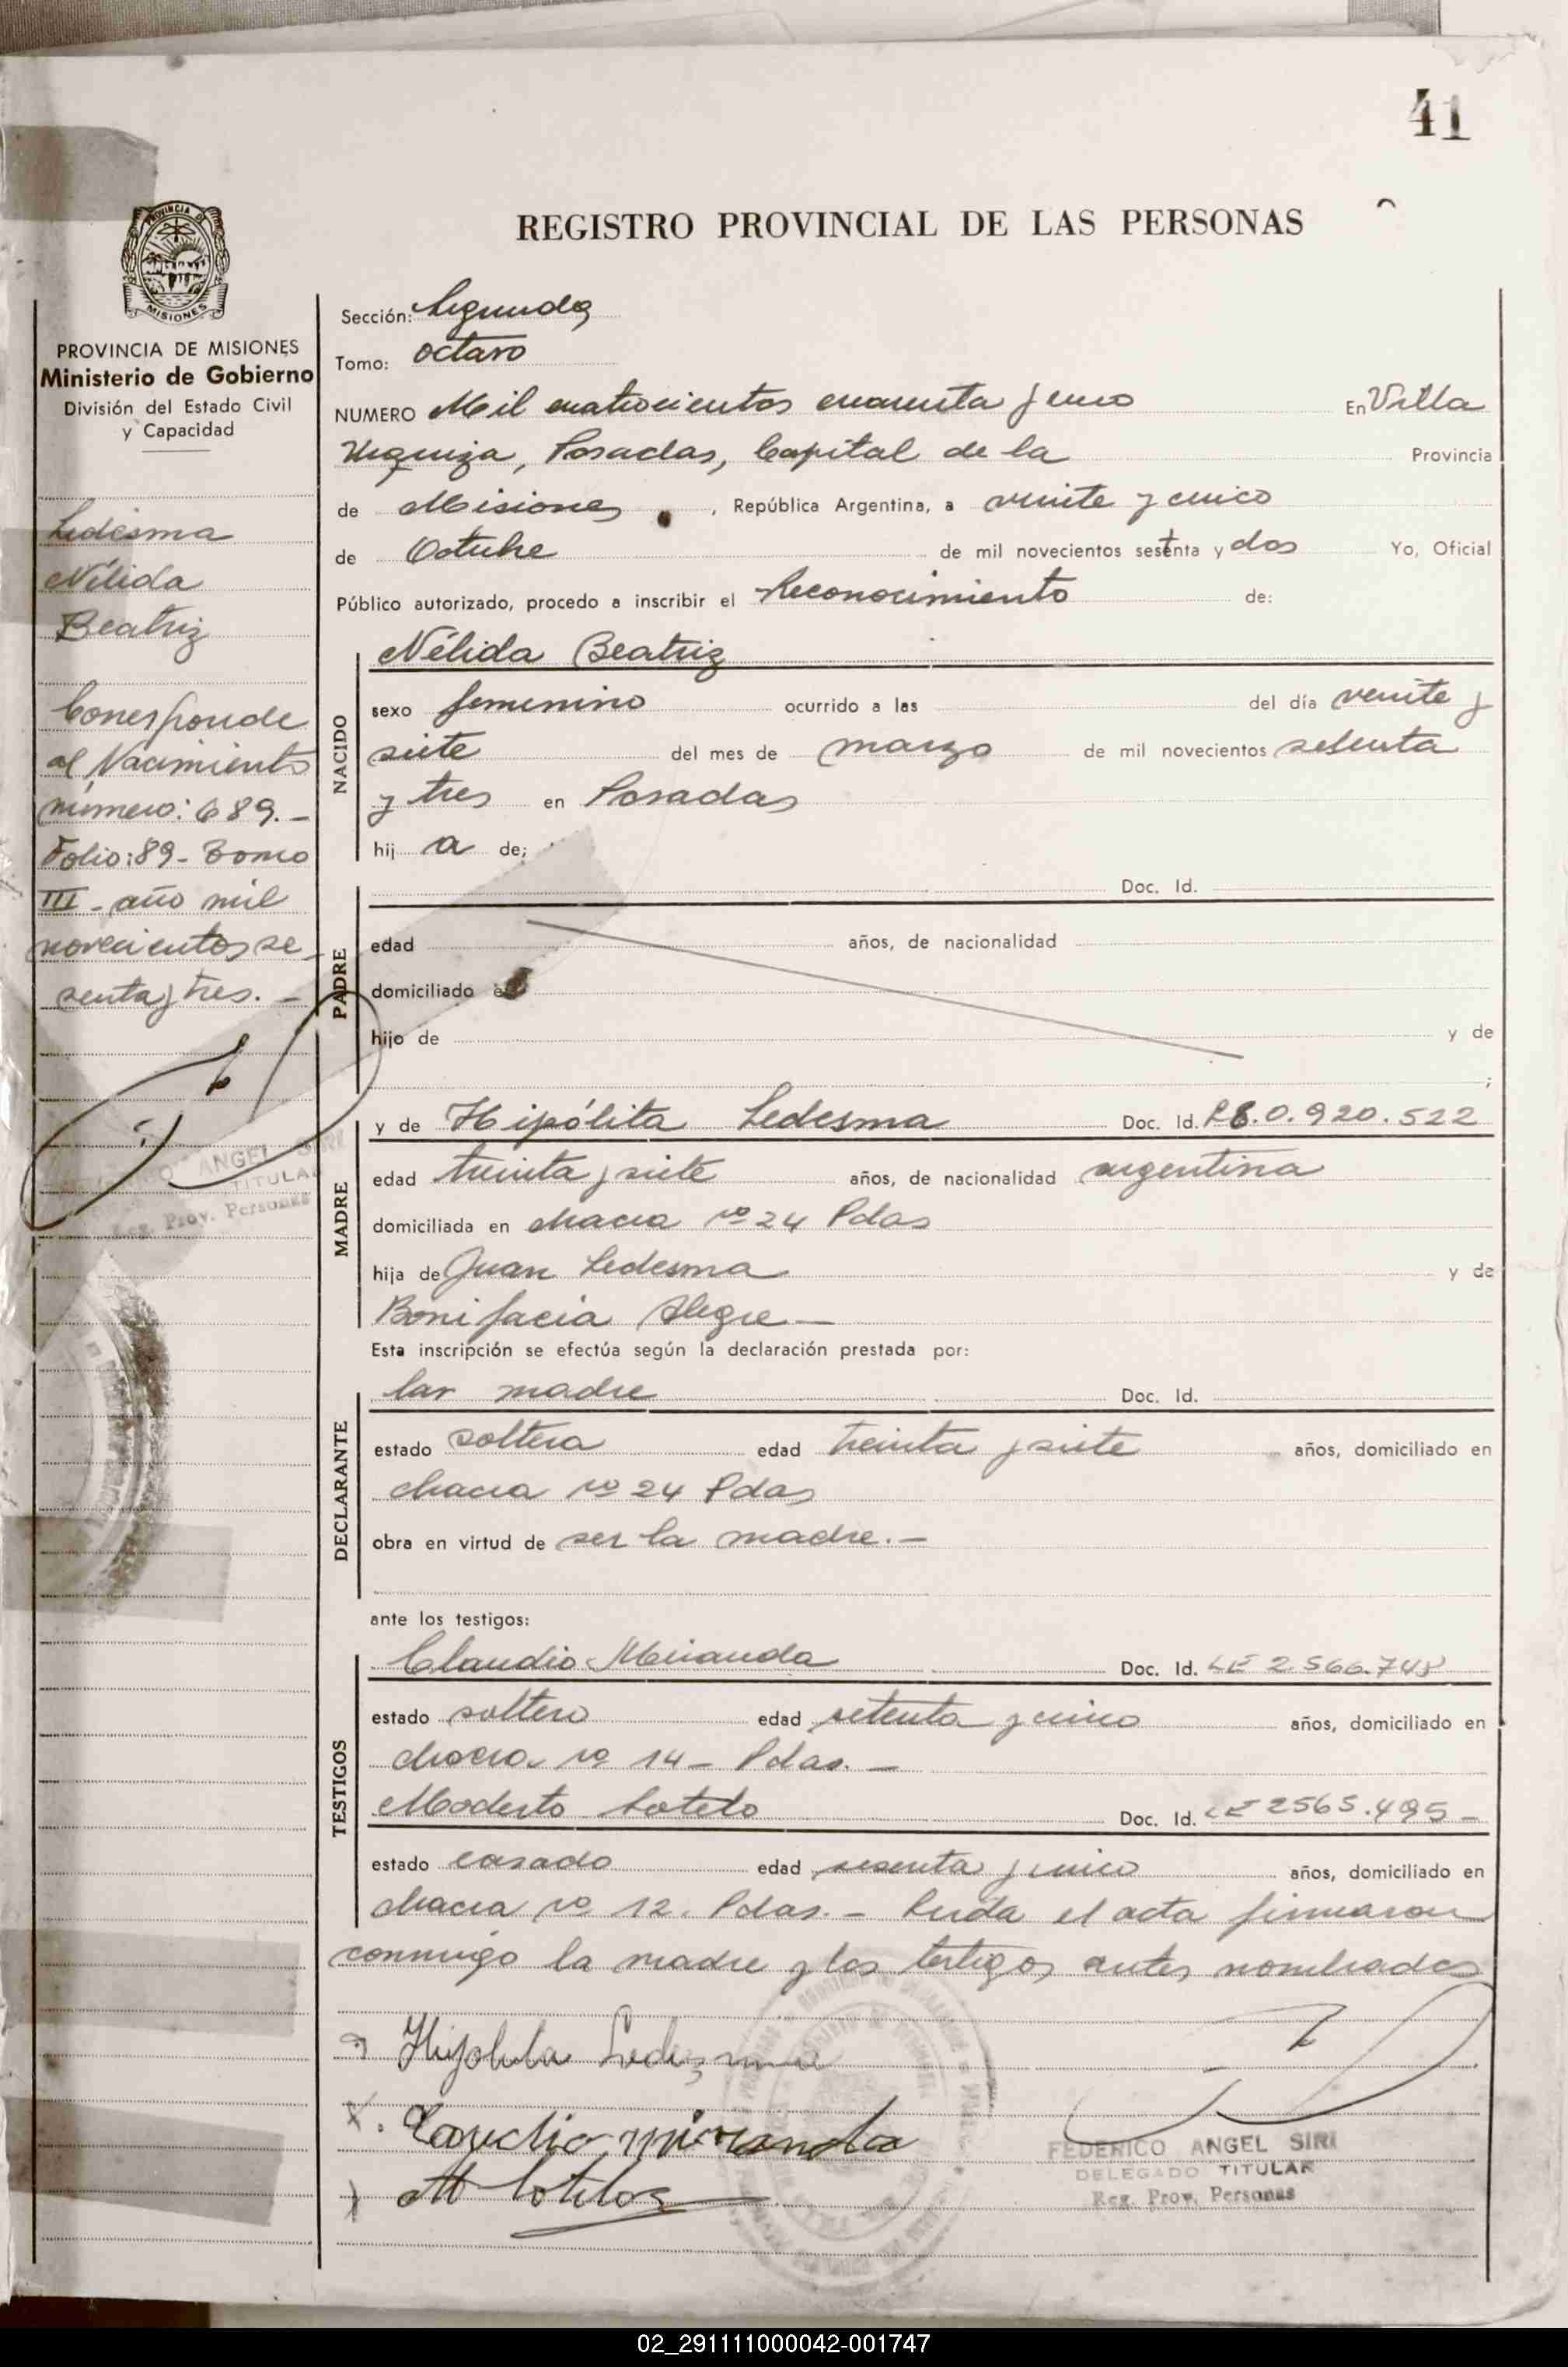 41
REGISTRO PROVINCIAL DE LAS PERSONAS
PROVINCIA DE
MISIONES
PROVINCIA DE MISIONES
Ministerio de Gobierno
División del Estado Civil
y Capacidad
Ledesma
Nélida
Beatriz
Corresponde
al Nacimiento
número: 689.-
Folio: 89 - Tomo
III - año mil
novecientos se-
senta y tres. -
ANGEL SIRI
TITULAR
Reg. Prov. Personas
Sección: Segunda
Tomo: octavo
NUMERO Mil cuatrocientos cuarenta y uno En Villa
Urquiza, Posadas, Capital de la Provincia
de Misiones , República Argentina, a veinte y cinco
de Octubre de mil novecientos setenta y dos Yo, Oficial
Público autorizado, procedo a inscribir el Reconocimiento de:
NACIDO
Nélida Beatriz
sexo femenino ocurrido a las del día veinte y
siete del mes de marzo de mil novecientos sesenta
y tres en Posadas
hij a de;
PADRE
Doc. Id.
edad años, de nacionalidad
domiciliado
hijo de y de
;
MADRE
y de Hipólita Ledesma Doc. Id. 0.920.522
edad treinta y siete años, de nacionalidad argentina
domiciliada en chacra nº 24 Pdas
hija de Juan Ledesma y de
Bonifacia Alegre -
Esta inscripción se efectúa según la declaración prestada por:
DECLARANTE
lar madre Doc. Id.
estado soltera edad treinta y siete años, domiciliado en
chacra nº 24 Pdas
obra en virtud de ser la madre. -
ante los testigos:
TESTIGOS
Claudio Miranda Doc. Id. LE 2.566.748
estado soltero edad setenta y cinco años, domiciliado en
chacra nº 14 - Pdas. -
Modesto Sotelo Doc. Id. LE 2565.495 -
estado casado edad sesenta y cinco años, domiciliado en
chacra nº 12. Pdas. - Leida el acta firmaron
conmigo la madre y los testigos antes nombrados
Hipolita Ledezma
x. Claudio miranda
M Sotelo
FEDERICO ANGEL SIRI
DELEGADO TITULAR
Reg. Prov. Personas
02_291111000042-001747